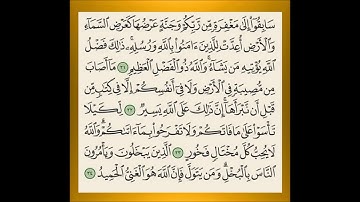 سَابِقُوٓا۟ إِلَىٰ مَغْفِرَةٍ مِّن رَّبِّكُمْ وَجَنَّةٍ عَرْضُهَا كَعَرْضِ ٱلسَّمَآءِ
وَٱلْأَرْضِ أُعِدَّتْ لِلَّذِينَ ءَامَنُوا۟ بِٱللَّهِ وَرُسُلِهِۦ ۚ ذَٰلِكَ فَضْلُ
ٱللَّهِ يُؤْتِيهِ مَن يَشَآءُ ۚ وَٱللَّهُ ذُو ٱلْفَضْلِ ٱلْعَظِيمِ ٢١ مَآ أَصَابَ
مِن مُّصِيبَةٍ فِى ٱلْأَرْضِ وَلَا فِىٓ أَنفُسِكُمْ إِلَّا فِى كِتَٰبٍ مِّن
قَبْلِ أَن نَّبْرَأَهَآ ۚ إِنَّ ذَٰلِكَ عَلَى ٱللَّهِ يَسِيرٌ ٢٢ لِّكَيْلَا
تَأْسَوْا۟ عَلَىٰ مَا فَاتَكُمْ وَلَا تَفْرَحُوا۟ بِمَآ ءَاتَىٰكُمْ ۗ وَٱللَّهُ
لَا يُحِبُّ كُلَّ مُخْتَالٍ فَخُورٍ ٢٣ ٱلَّذِينَ يَبْخَلُونَ وَيَأْمُرُونَ
ٱلنَّاسَ بِٱلْبُخْلِ ۗ وَمَن يَتَوَلَّ فَإِنَّ ٱللَّهَ هُوَ ٱلْغَنِىُّ ٱلْحَمِيدُ ٢٤